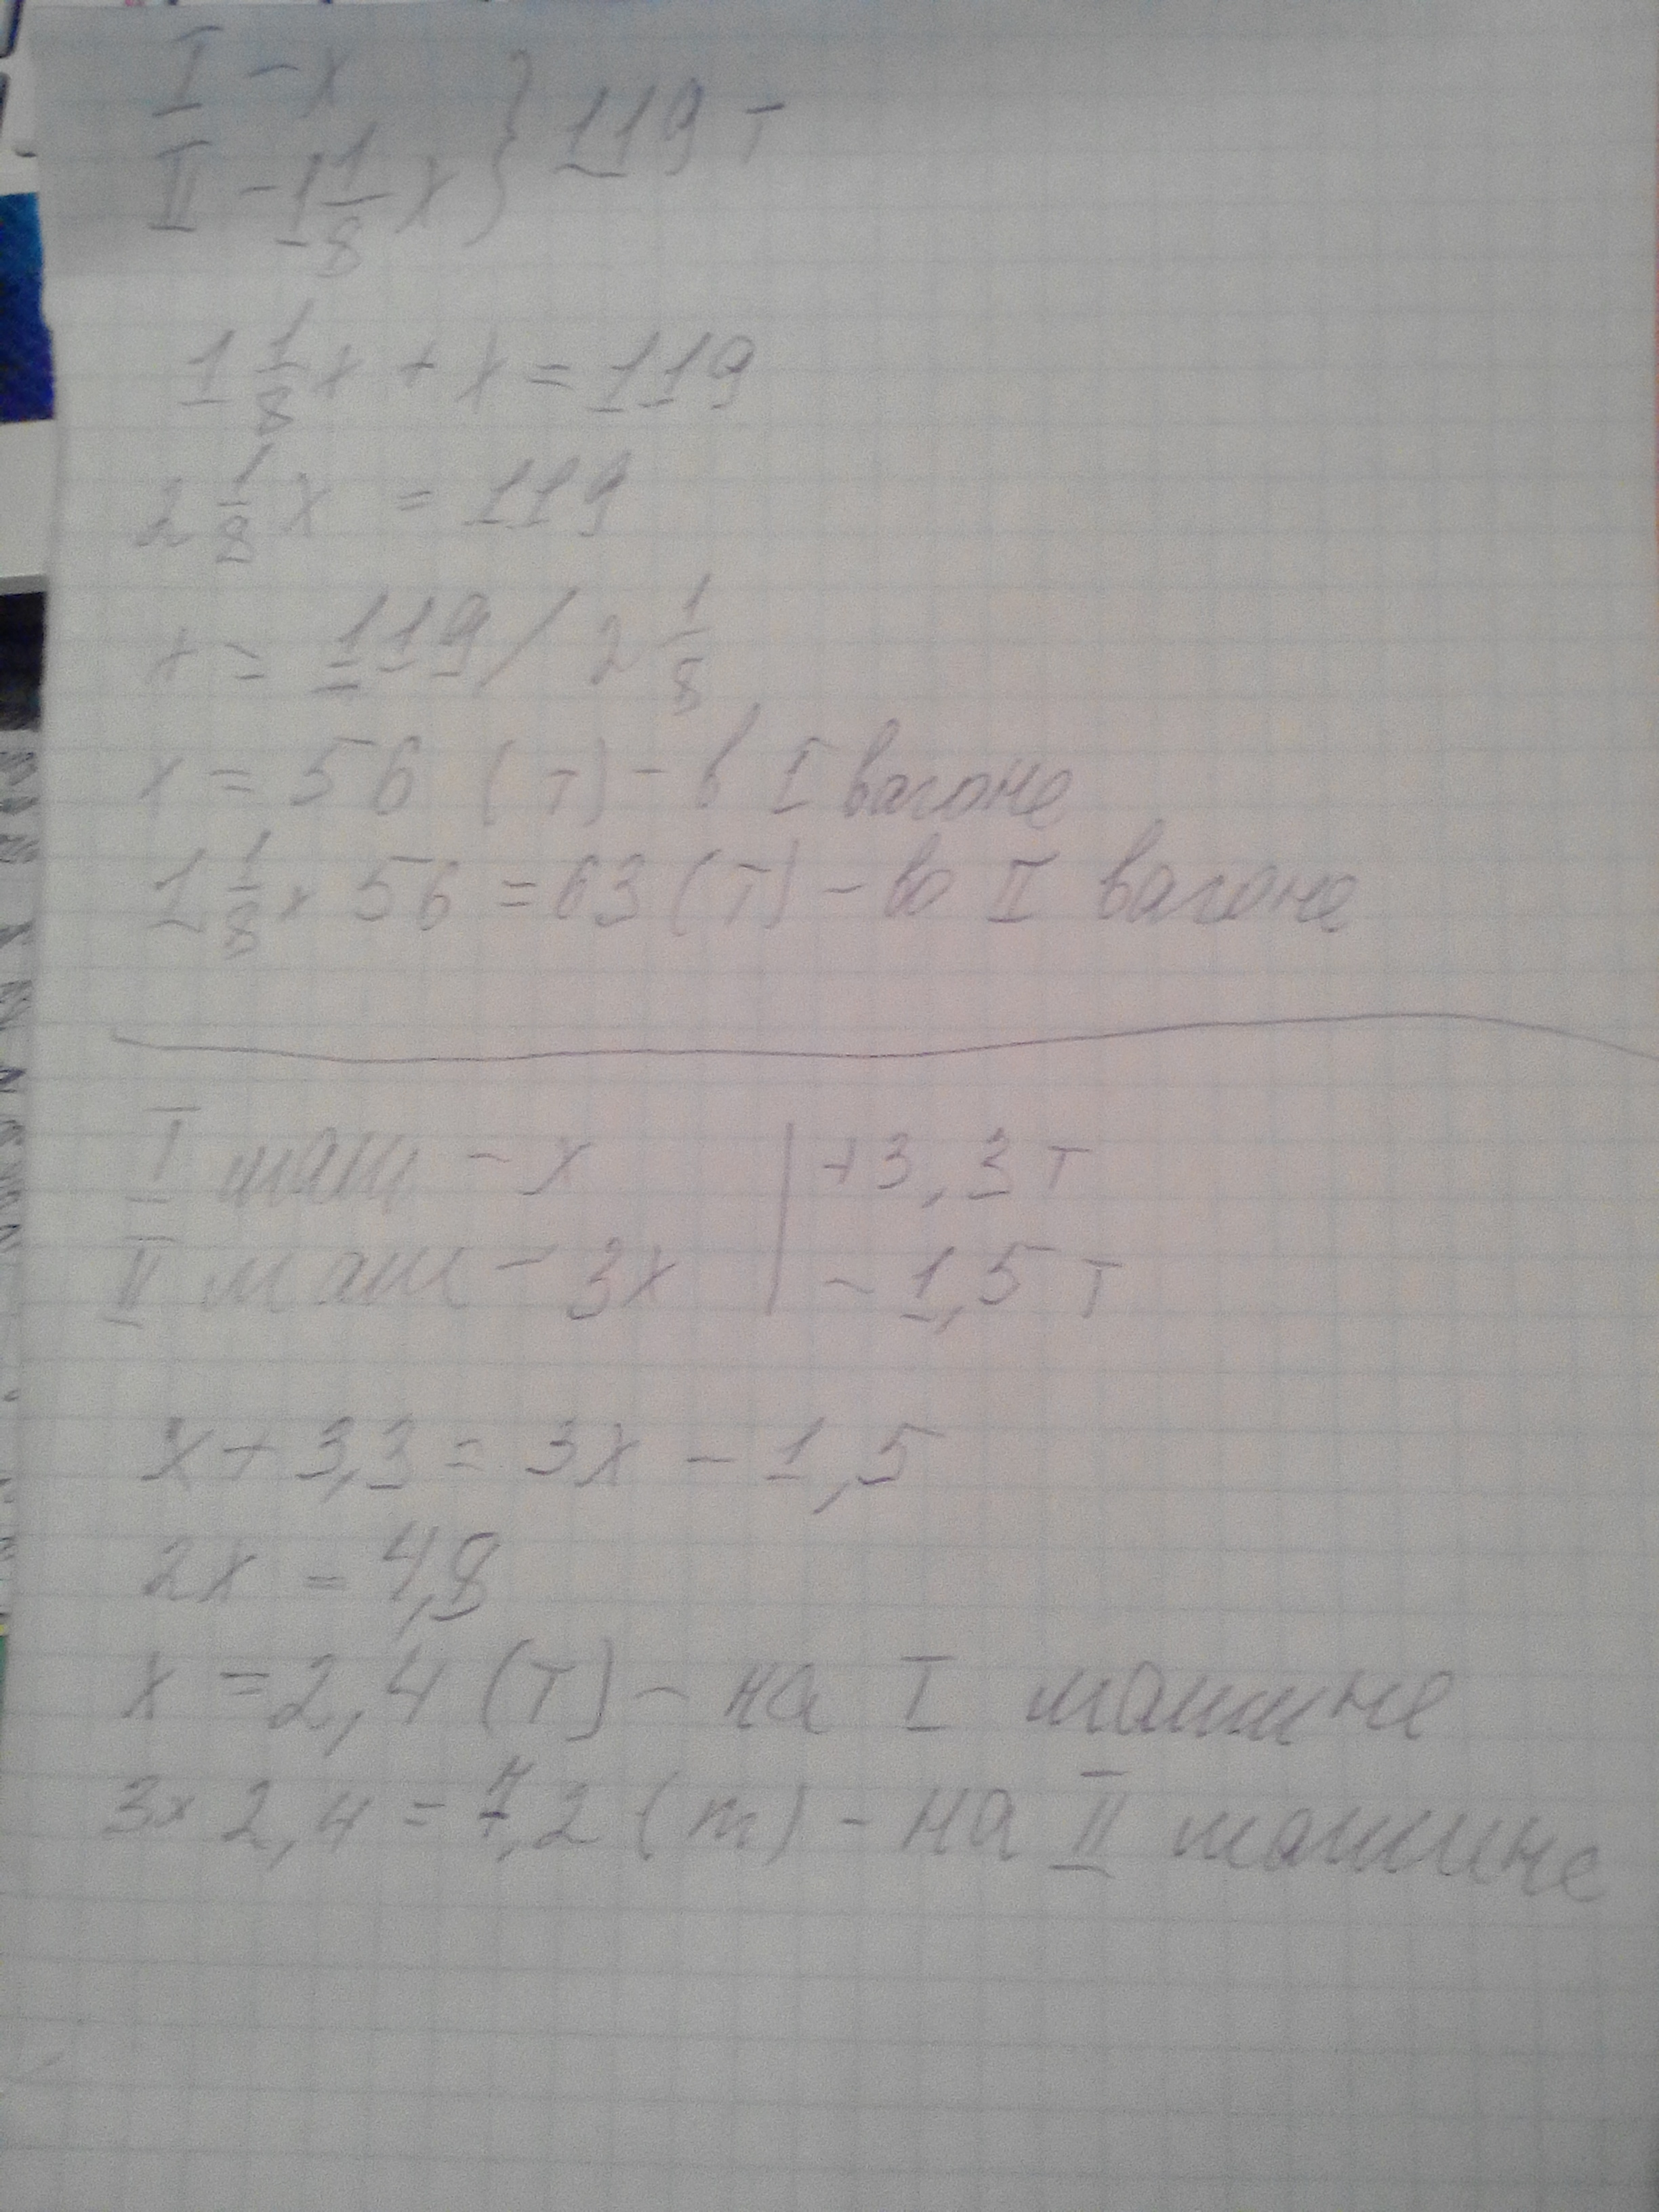 I - x
II - 1 1/8 x } 119 т
1 1/8 x + x = 119
2 1/8 x = 119
x = 119 / 2 1/8
x = 56 (т) - в I вагоне
1 1/8 × 56 = 63 (т) - во II вагоне
I маш - x | +3,3 т
II маш - 3x | - 1,5 т
x + 3,3 = 3x - 1,5
2x = 4,8
x = 2,4 (т) - на I машине
3 × 2,4 = 7,2 (т) - на II машине